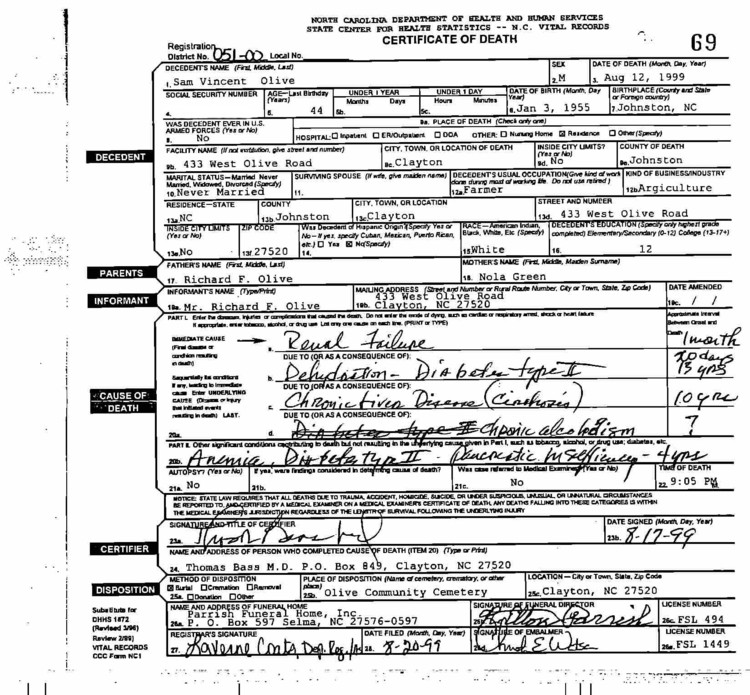 NORTH CAROLINA DEPARTMENT OF HEALTH AND HUMAN SERVICES
STATE CENTER FOR HEALTH STATISTICS -- N.C. VITAL RECORDS
CERTIFICATE OF DEATH
69
Registration
District No. 051-00 Local No.
DECEDENT'S NAME (First, Middle, Last)
1. Sam Vincent Olive
SEX
2. M
DATE OF DEATH (Month, Day, Year)
3. Aug 12, 1999
SOCIAL SECURITY NUMBER
4.
AGE—Last Birthday (Years)
5. 44
UNDER 1 YEAR
Months Days
5b.
UNDER 1 DAY
Hours Minutes
5c.
DATE OF BIRTH (Month, Day Year)
6. Jan 3, 1955
BIRTHPLACE (County and State or Foreign country)
7. Johnston, NC
WAS DECEDENT EVER IN U.S. ARMED FORCES (Yes or No)
8. No
9a. PLACE OF DEATH (Check only one)
HOSPITAL: ☐ Inpatient ☐ ER/Outpatient ☐ DOA OTHER: ☐ Nursing Home ☒ Residence ☐ Other (Specify)
DECEDENT
FACILITY NAME (If not institution, give street and number)
9b. 433 West Olive Road
CITY, TOWN, OR LOCATION OF DEATH
9c. Clayton
INSIDE CITY LIMITS? (Yes or No)
9d. No
COUNTY OF DEATH
9e. Johnston
MARITAL STATUS—Married Never Married, Widowed, Divorced (Specify)
10. Never Married
SURVIVING SPOUSE (If wife, give maiden name)
11.
DECEDENT'S USUAL OCCUPATION (Give kind of work done during most of working life. Do not use retired)
12a. Farmer
KIND OF BUSINESS/INDUSTRY
12b. Argiculture
RESIDENCE—STATE
13a. NC
COUNTY
13b. Johnston
CITY, TOWN, OR LOCATION
13c. Clayton
STREET AND NUMBER
13d. 433 West Olive Road
INSIDE CITY LIMITS (Yes or No)
13e. No
ZIP CODE
13f. 27520
Was Decedent of Hispanic Origin? (Specify Yes or No—If yes, specify Cuban, Mexican, Puerto Rican, etc.) ☐ Yes ☒ No (Specify)
14.
RACE—American Indian, Black, White, Etc (Specify)
15. White
DECEDENT'S EDUCATION (Specify only highest grade completed) Elementary/Secondary (0-12) College (13-17+)
16. 12
PARENTS
FATHER'S NAME (First, Middle, Last)
17. Richard F. Olive
MOTHER'S NAME (First, Middle, Maiden Surname)
18. Nola Green
INFORMANT
INFORMANT'S NAME (Type/Print)
19a. Mr. Richard F. Olive
MAILING ADDRESS (Street and Number or Rural Route Number, City or Town, State, Zip Code)
433 West Olive Road
19b. Clayton, NC 27520
DATE AMENDED
19c. / /
PART I. Enter the diseases, injuries or complications that caused the death. Do not enter the mode of dying, such as cardiac or respiratory arrest, shock or heart failure
If appropriate, enter tobacco, alcohol, or drug use List only one cause on each line. (PRINT or TYPE)
Approximate Interval Between Onset and Death
IMMEDIATE CAUSE (Final disease or condition resulting in death)
a. Renal Failure
1 month
DUE TO (OR AS A CONSEQUENCE OF):
b. Dehydration - Diabetes type II
20 days
15 yrs
Sequentially list conditions if any, leading to immediate cause Enter UNDERLYING CAUSE (Disease or injury that initiated events resulting in death) LAST.
CAUSE OF DEATH
DUE TO (OR AS A CONSEQUENCE OF):
c. Chronic Liver Disease (Cirrhosis)
10 yrs
DUE TO (OR AS A CONSEQUENCE OF):
20a. d. Diabetes type II Chronic alcoholism
?
PART II. Other significant conditions contributing to death but not resulting in the underlying cause given in Part I, such as tobacco, alcohol, or drug use; diabetes, etc.
20b. Anemia Diabetes type II - Pancreatic Insufficiency - 4 yrs
AUTOPSY? (Yes or No)
21a. No
If yes, were findings considered in determining cause of death?
21b.
Was case referred to Medical Examiner? (Yes or No)
21c. No
TIME OF DEATH
22. 9:05 PM
NOTICE: STATE LAW REQUIRES THAT ALL DEATHS DUE TO TRAUMA, ACCIDENT, HOMICIDE, SUICIDE, OR UNDER SUSPICIOUS, UNUSUAL, OR UNNATURAL CIRCUMSTANCES
BE REPORTED TO, AND CERTIFIED BY A MEDICAL EXAMINER ON A MEDICAL EXAMINER'S CERTIFICATE OF DEATH, ANY DEATHS FALLING INTO THESE CATEGORIES IS WITHIN
THE MEDICAL EXAMINER'S JURISDICTION REGARDLESS OF THE LENGTH OF SURVIVAL FOLLOWING THE UNDERLYING INJURY
CERTIFIER
SIGNATURE AND TITLE OF CERTIFIER
23a.
DATE SIGNED (Month, Day, Year)
23b. 8-17-99
NAME AND ADDRESS OF PERSON WHO COMPLETED CAUSE OF DEATH (ITEM 20) (Type or Print)
24. Thomas Bass M.D. P.O. Box 849, Clayton, NC 27520
DISPOSITION
METHOD OF DISPOSITION
☒ Burial ☐ Cremation ☐ Removal
25a. ☐ Donation ☐ Other
PLACE OF DISPOSITION (Name of cemetery, crematory, or other place)
25b. Olive Community Cemetery
LOCATION — City or Town, State, Zip Code
25c. Clayton, NC 27520
NAME AND ADDRESS OF FUNERAL HOME
Parrish Funeral Home, Inc.
26a. P. O. Box 597 Selma, NC 27576-0597
SIGNATURE OF FUNERAL DIRECTOR
LICENSE NUMBER
26c. FSL 494
REGISTRAR'S SIGNATURE
27.
DATE FILED (Month, Day, Year)
28. 8-20-99
SIGNATURE OF EMBALMER
LICENSE NUMBER
26e. FSL 1449
Substitute for
DHHS 1872
(Revised 3/96)
Review 2/89)
VITAL RECORDS
CCC Form NC1